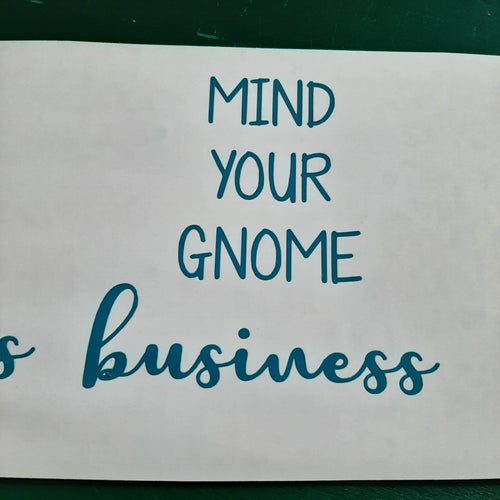 MIND
YOUR
GNOME
s business